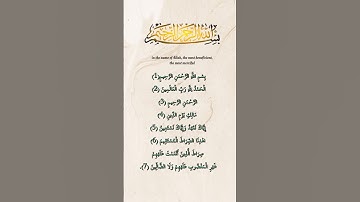 بسم الله الرحمن الرحيم
In the name of Allah, the most beneficient,
the most merciful
بِسْمِ اللَّهِ الرَّحْمَٰنِ الرَّحِيمِ (1)
الْحَمْدُ لِلَّهِ رَبِّ الْعَالَمِينَ (2)
الرَّحْمَٰنِ الرَّحِيمِ (3)
مَالِكِ يَوْمِ الدِّينِ (4)
إِيَّاكَ نَعْبُدُ وَإِيَّاكَ نَسْتَعِينُ (5)
اهْدِنَا الصِّرَاطَ الْمُسْتَقِيمَ (6)
صِرَاطَ الَّذِينَ أَنْعَمْتَ عَلَيْهِمْ
غَيْرِ الْمَغْضُوبِ عَلَيْهِمْ وَلَا الضَّالِّينَ (7).